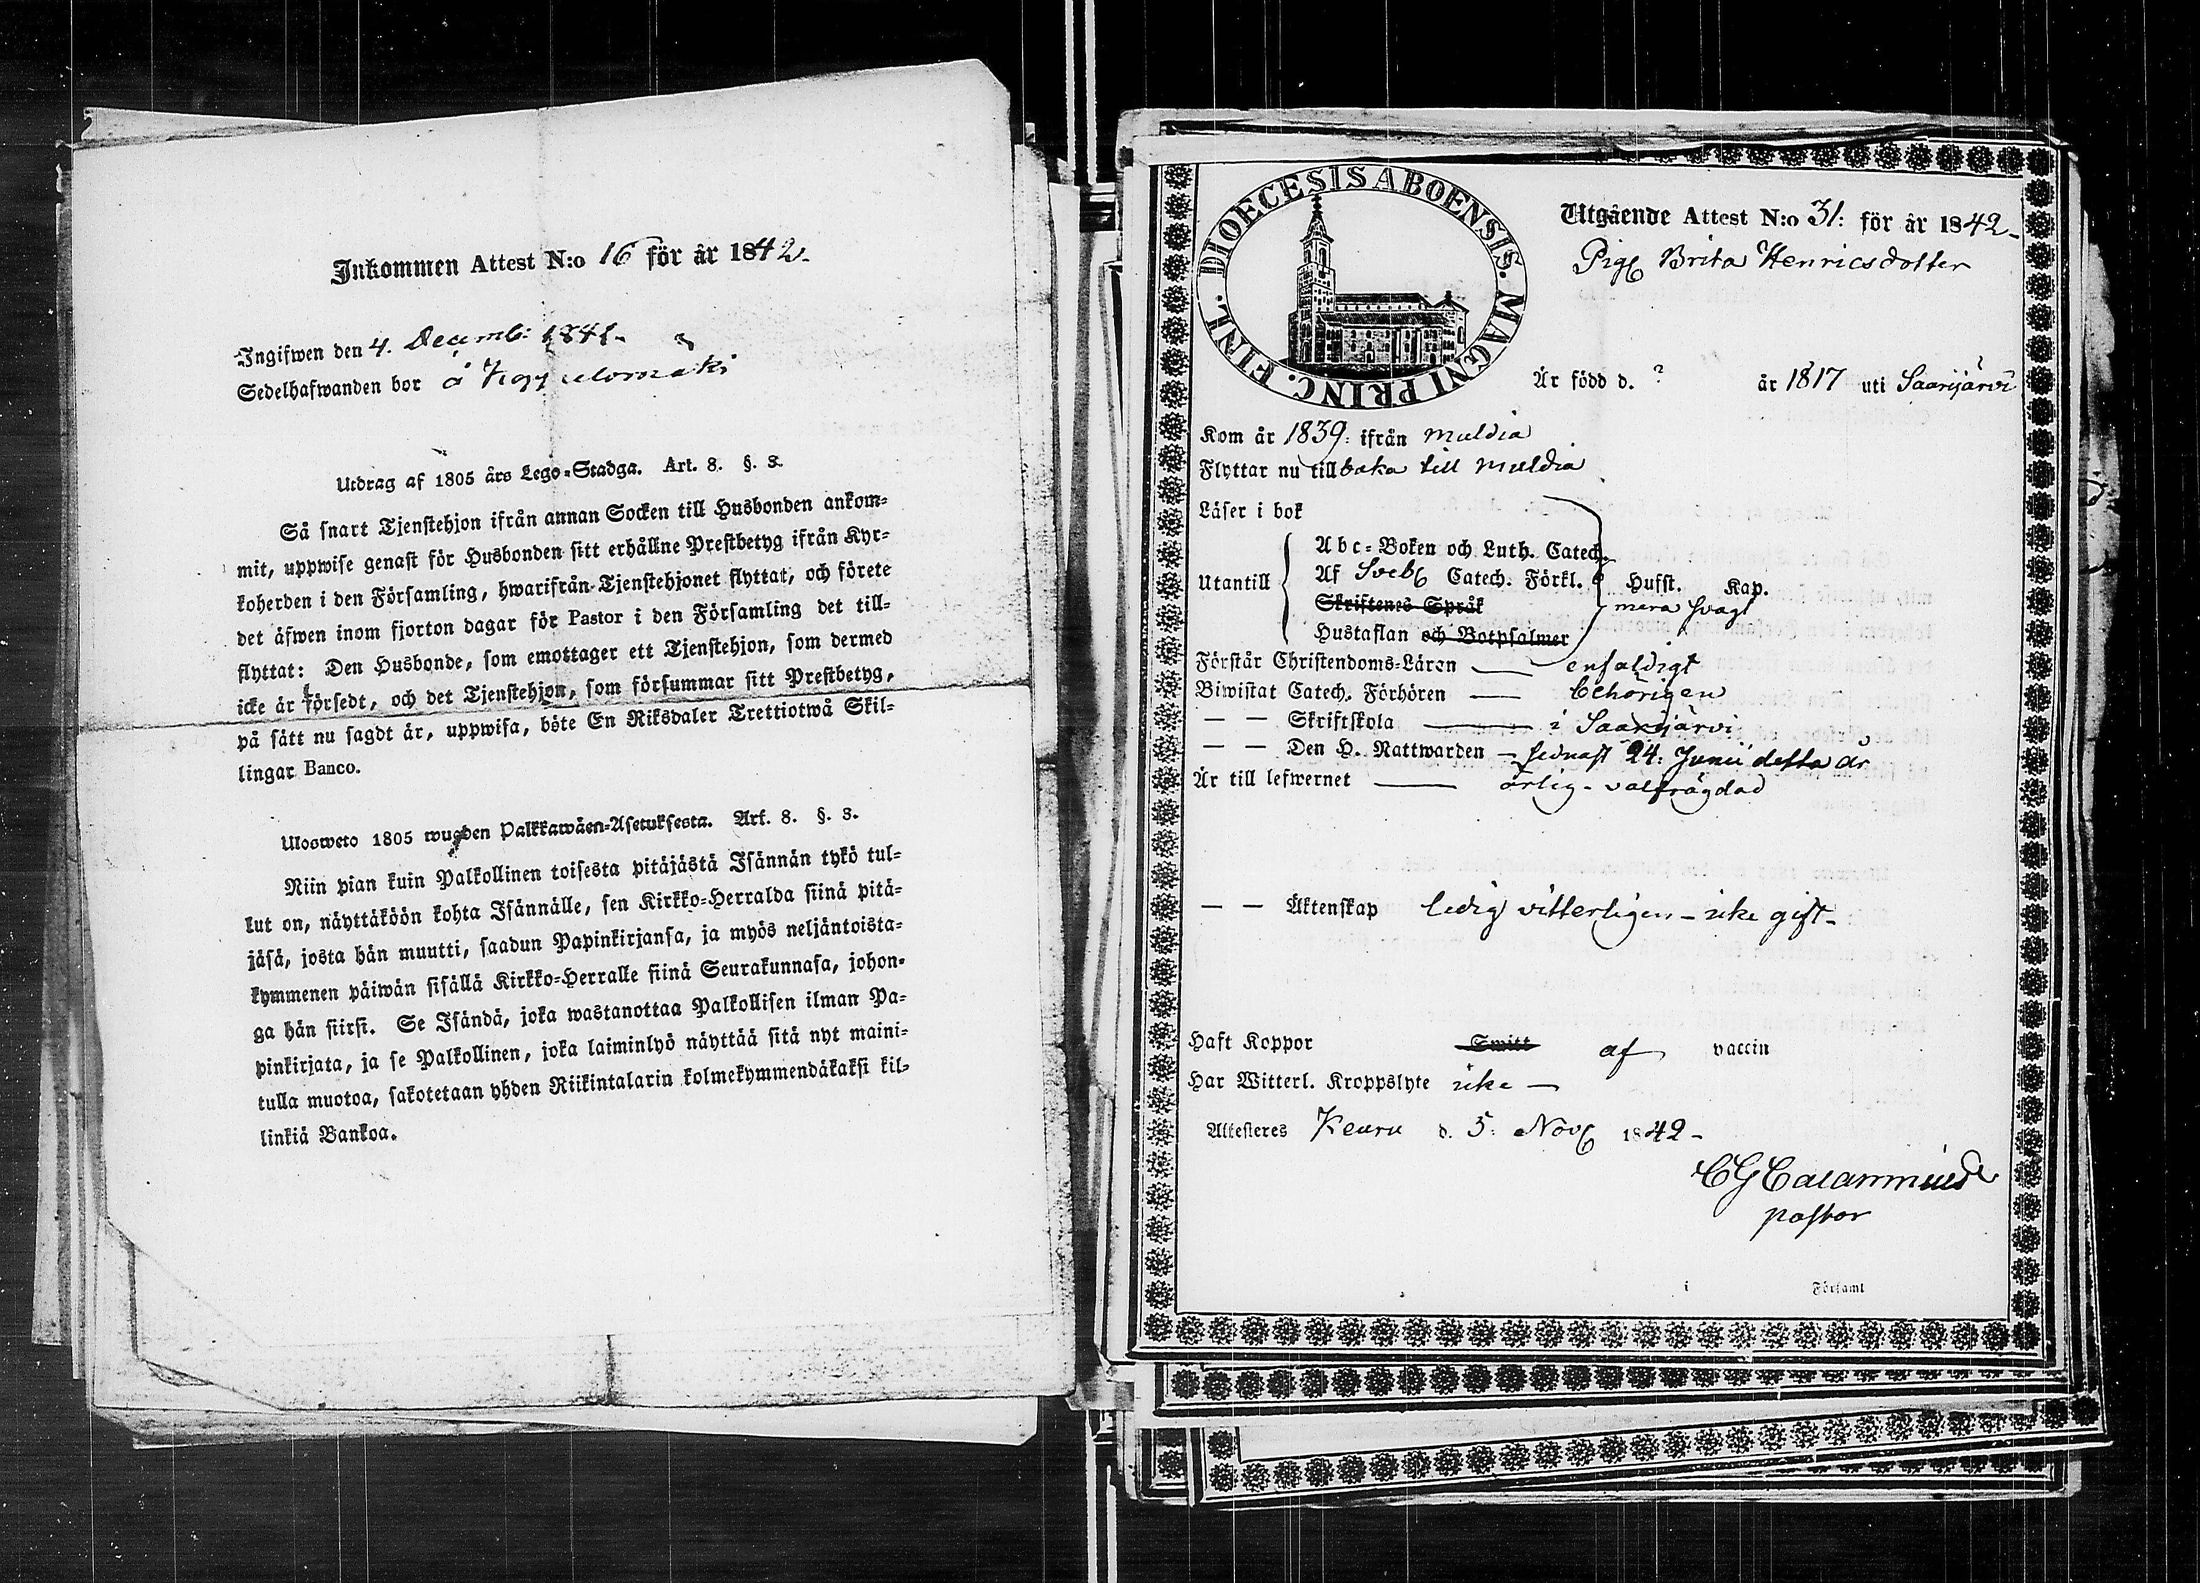 Inkommen Attest N:o 16 för år 1842.
Ingifwen den 4. Decemb: 1841.
Sedelhafwanden bor å
Utdrag af 1805 års Lego-Stadga. Art. 8. §. 3.
Så snart Tjenstehjon ifrån annan Socken till Husbonden ankom-
mit, uppwise genast för Husbonden sitt erhållne Prestbetyg ifrån Kyr-
koherden i den Församling, hwarifrån Tjenstehjonet flyttat, och förete
det äfwen inom fjorton dagar för Pastor i den Församling det till-
flyttat: Den Husbonde, som emottager ett Tjenstehjon, som dermed
icke är försedt, och det Tjenstehjon, som försummar sitt Prestbetyg,
på sätt nu sagdt är, uppwisa, böte En Riksdaler Trettiotwå Skil-
lingar Banco.
Ulosweto 1805 wuoden Palkkawäen-Asetuksesta. Art. 8. §. 3.
Niin pian kuin Palkollinen toisesta pitäjästä Isännän tykö tul-
lut on, näyttäköön kohta Isännälle, sen Kirkko-Herralda siinä pitä-
jäsä, josta hän muutti, saadun Papinkirjansa, ja myös neljäntoista-
kymmenen päiwän sisällä Kirkko-Herralle siinä Seurakunnasa, johon-
ga hän siirsi. Se Isändä, joka wastanottaa Palkollisen ilman Pa-
pinkirjata, ja se Palkollinen, joka laiminlyö näyttää sitä nyt maini-
tulla muotoa, sakotetaan yhden Riikintalarin kolmekymmendäkaksi kil-
linkiä Bankoa.
DIOECESIS ABOENSIS. MAGNI PRINC. FINL.
Utgående Attest N:o 31: för år 1842-
Pig Brita Henricsdotter
Är född d. ? år 1817 uti Saarijärvi
Kom år 1839: ifrån Muldia
Flyttar nu tillbaka till Muldia
Läser i bok
Abc-Boken och Luth. Catech.
Utantill Af Sveb Catech. Förkl. Husst. Kap.
Skriftenes Språk mera svagt
Hustaflan och Botpsalmer
Förstår Christendoms-Lären — enfaldigt
Biwistat Catech. Förhören — behörigen
— — Skriftskola — i Saarijärvi
— — Den H. Nattwarden — sednast 24: Junii detta år
Är till lefwernet — ärlig - välfrägdad
— — Äktenskap ledig vitterligen - icke gift-
Haft Koppor Smitt af vaccin
Har Witterl. Kroppslyte icke —
Attesteres Keuru d. 5: Nov 1842-
CG Calamnius
pastor
i Församl